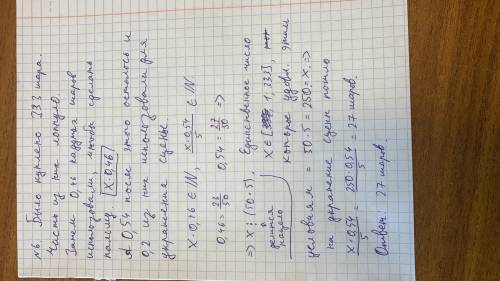 №6 Было куплено 333 шара.
Часть из них лопнуло.
Затем 0,46 надутых шаров
использовали, чтобы сделать
пальму. X·0,46
А 0,54 после этого осталось и
0,2 из них использовали для
украшения сцены.
X·0,46 ∈ IN, X·0,54/5 ∈ IN
0,46 = 23/50 0,54 = 27/50 =>
=> X ⋮ (10·5). Единственное число
делится
нацело
X ∈ [1, 333],
которое удовл. этим
условиям = 50·5 = 250 = X. =>
на украшение сцены пошло
X·0,54/5 = 250·0,54/5 = 27 шаров.
Ответ: 27 шаров.